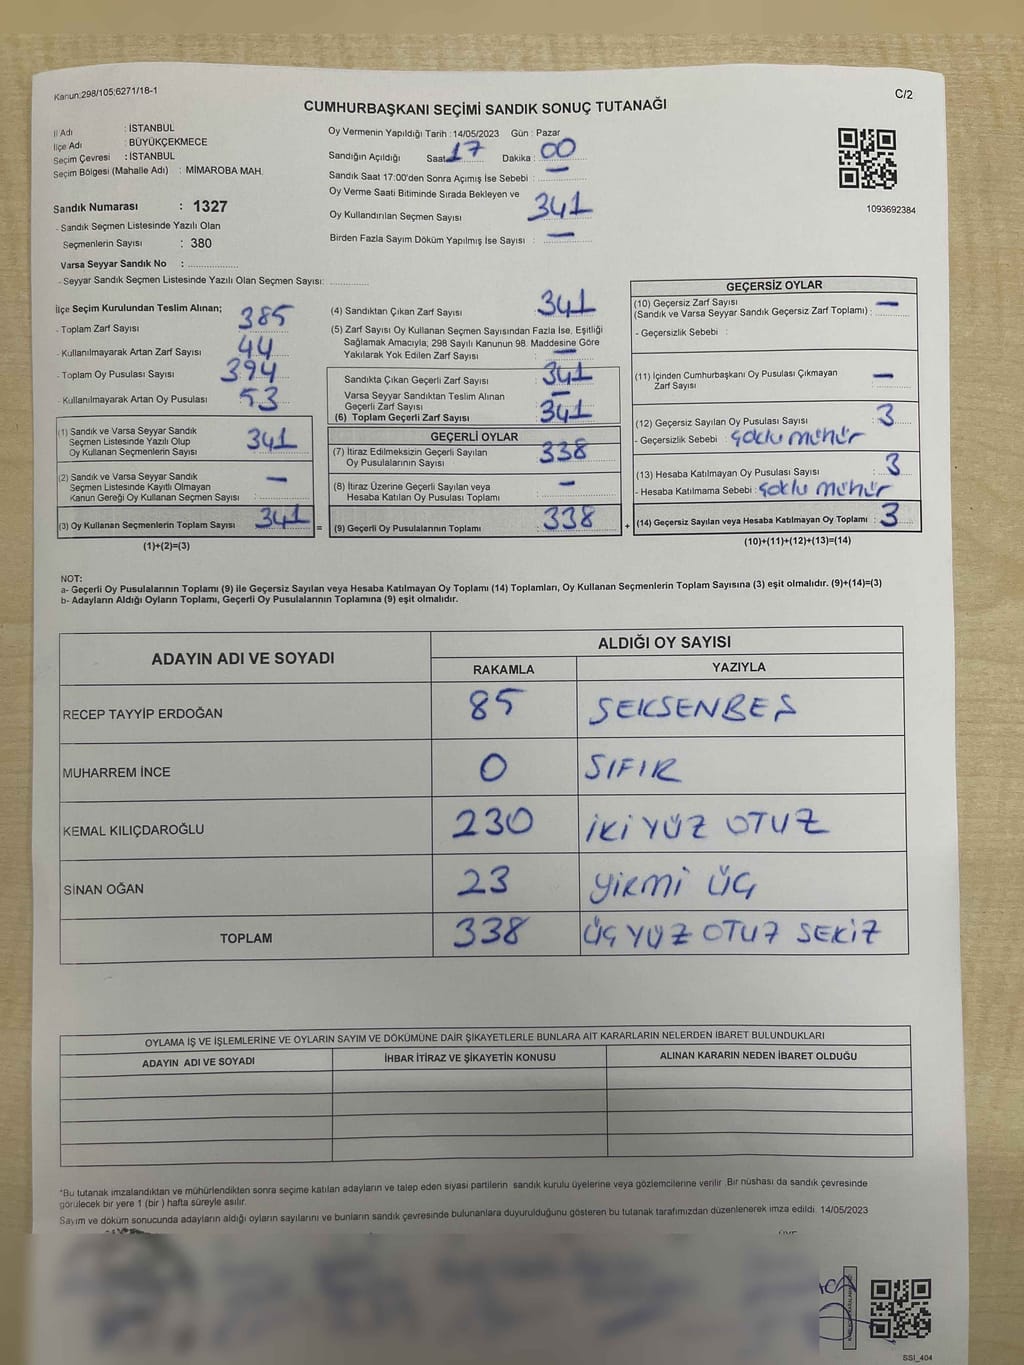 Kanun:298/105;6271/18-1
C/2
CUMHURBAŞKANI SEÇİMİ SANDIK SONUÇ TUTANAĞI
İl Adı : İSTANBUL
İlçe Adı : BÜYÜKÇEKMECE
Seçim Çevresi : İSTANBUL
Seçim Bölgesi (Mahalle Adı) : MİMAROBA MAH.
Sandık Numarası : 1327
- Sandık Seçmen Listesinde Yazılı Olan
Seçmenlerin Sayısı : 380
Varsa Seyyar Sandık No :
- Seyyar Sandık Seçmen Listesinde Yazılı Olan Seçmen Sayısı:
Oy Vermenin Yapıldığı Tarih : 14/05/2023 Gün : Pazar
Sandığın Açıldığı Saat 17 Dakika : 00
Sandık Saat 17:00'den Sonra Açımış İse Sebebi : —
Oy Verme Saati Bitiminde Sırada Bekleyen ve
Oy Kullandırılan Seçmen Sayısı 341
Birden Fazla Sayım Döküm Yapılmış İse Sayısı : —
1093692384
İlçe Seçim Kurulundan Teslim Alınan;
- Toplam Zarf Sayısı 385
- Kullanılmayarak Artan Zarf Sayısı 44
- Toplam Oy Pusulası Sayısı 394
- Kullanılmayarak Artan Oy Pusulası 53
(1) Sandık ve Varsa Seyyar Sandık
Seçmen Listesinde Yazılı Olup
Oy Kullanan Seçmenlerin Sayısı 341
(2) Sandık ve Varsa Seyyar Sandık
Seçmen Listesinde Kayıtlı Olmayan
Kanun Gereği Oy Kullanan Seçmen Sayısı : —
(3) Oy Kullanan Seçmenlerin Toplam Sayısı 341 =
(1)+(2)=(3)
(4) Sandıktan Çıkan Zarf Sayısı : 341
(5) Zarf Sayısı Oy Kullanan Seçmen Sayısından Fazla İse, Eşitliği
Sağlamak Amacıyla; 298 Sayılı Kanunun 98. Maddesine Göre
Yakılarak Yok Edilen Zarf Sayısı : —
Sandıkta Çıkan Geçerli Zarf Sayısı : 341
Varsa Seyyar Sandıktan Teslim Alınan
Geçerli Zarf Sayısı : —
(6) Toplam Geçerli Zarf Sayısı : 341
GEÇERLİ OYLAR
(7) İtiraz Edilmeksizin Geçerli Sayılan
Oy Pusulalarının Sayısı : 338
(8) İtiraz Üzerine Geçerli Sayılan veya
Hesaba Katılan Oy Pusulası Toplamı : —
(9) Geçerli Oy Pusulalarının Toplamı : 338 +
GEÇERSİZ OYLAR
(10) Geçersiz Zarf Sayısı
(Sandık ve Varsa Seyyar Sandık Geçersiz Zarf Toplamı) : —
- Geçersizlik Sebebi :
(11) İçinden Cumhurbaşkanı Oy Pusulası Çıkmayan
Zarf Sayısı : —
(12) Geçersiz Sayılan Oy Pusulası Sayısı : 3
- Geçersizlik Sebebi : Çoklu mühür
(13) Hesaba Katılmayan Oy Pusulası Sayısı : 3
- Hesaba Katılmama Sebebi : Çoklu mühür
(14) Geçersiz Sayılan veya Hesaba Katılmayan Oy Toplamı : 3
(10)+(11)+(12)+(13)=(14)
NOT:
a- Geçerli Oy Pusulalarının Toplamı (9) ile Geçersiz Sayılan veya Hesaba Katılmayan Oy Toplamı (14) Toplamları, Oy Kullanan Seçmenlerin Toplam Sayısına (3) eşit olmalıdır. (9)+(14)=(3)
b- Adayların Aldığı Oyların Toplamı, Geçerli Oy Pusulalarının Toplamına (9) eşit olmalıdır.
ADAYIN ADI VE SOYADI
ALDIĞI OY SAYISI
RAKAMLA YAZIYLA
RECEP TAYYİP ERDOĞAN 85 SEKSENBEŞ
MUHARREM İNCE 0 SIFIR
KEMAL KILIÇDAROĞLU 230 İKİ YÜZ OTUZ
SİNAN OĞAN 23 YİRMİ ÜÇ
TOPLAM 338 ÜÇ YÜZ OTUZ SEKİZ
OYLAMA İŞ VE İŞLEMLERİNE VE OYLARIN SAYIM VE DÖKÜMÜNE DAİR ŞİKAYETLERLE BUNLARA AİT KARARLARIN NELERDEN İBARET BULUNDUKLARI
ADAYIN ADI VE SOYADI İHBAR İTİRAZ VE ŞİKAYETİN KONUSU ALINAN KARARIN NEDEN İBARET OLDUĞU
*Bu tutanak imzalandıktan ve mühürlendikten sonra seçime katılan adayların ve talep eden siyasi partilerin sandık kurulu üyelerine veya gözlemcilerine verilir .Bir nüshası da sandık çevresinde
görülecek bir yere 1 (bir ) hafta süreyle asılır.
Sayım ve döküm sonucunda adayların aldığı oyların sayılarını ve bunların sandık çevresinde bulunanlara duyurulduğunu gösteren bu tutanak tarafımızdan düzenlenerek imza edildi. 14/05/2023
SSI_404